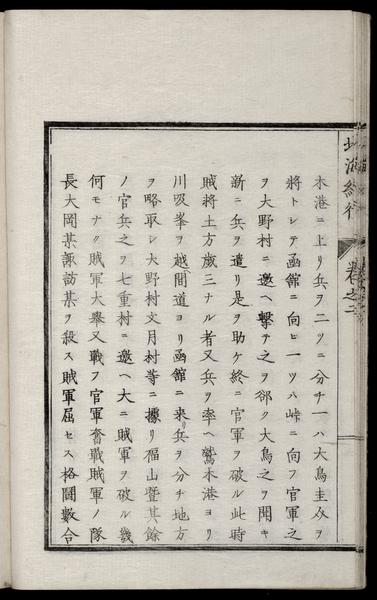 木港ニ上リ兵ヲ二ツニ分チ一ハ大鳥圭介ヲ
將トシテ函館ニ向ヒ一ツハ峠ニ向フ官軍之
ヲ大野村ニ邀ヘ擊チ之ヲ郤ク大鳥之ヲ聞キ
新ニ兵ヲ遣リ是ヲ助ケ終ニ官軍ヲ破ル此時
賊將土方歲三ナル者又兵ヲ率ヘ鷲木港ヨリ
川吸峯ヲ越間道ヨリ函館ニ来リ兵ヲ分チ地方
ヲ略取シ大野村文月村等ニ據リ福山暨其餘
ノ官兵之ヲ七重村ニ邀ヘ大ニ賊軍ヲ破ル幾
何モナク賊軍大擧又戰フ官軍奮戰賊軍ノ隊
長大岡某諏訪某ヲ殺ス賊軍屈セス格鬪數合
卷之二